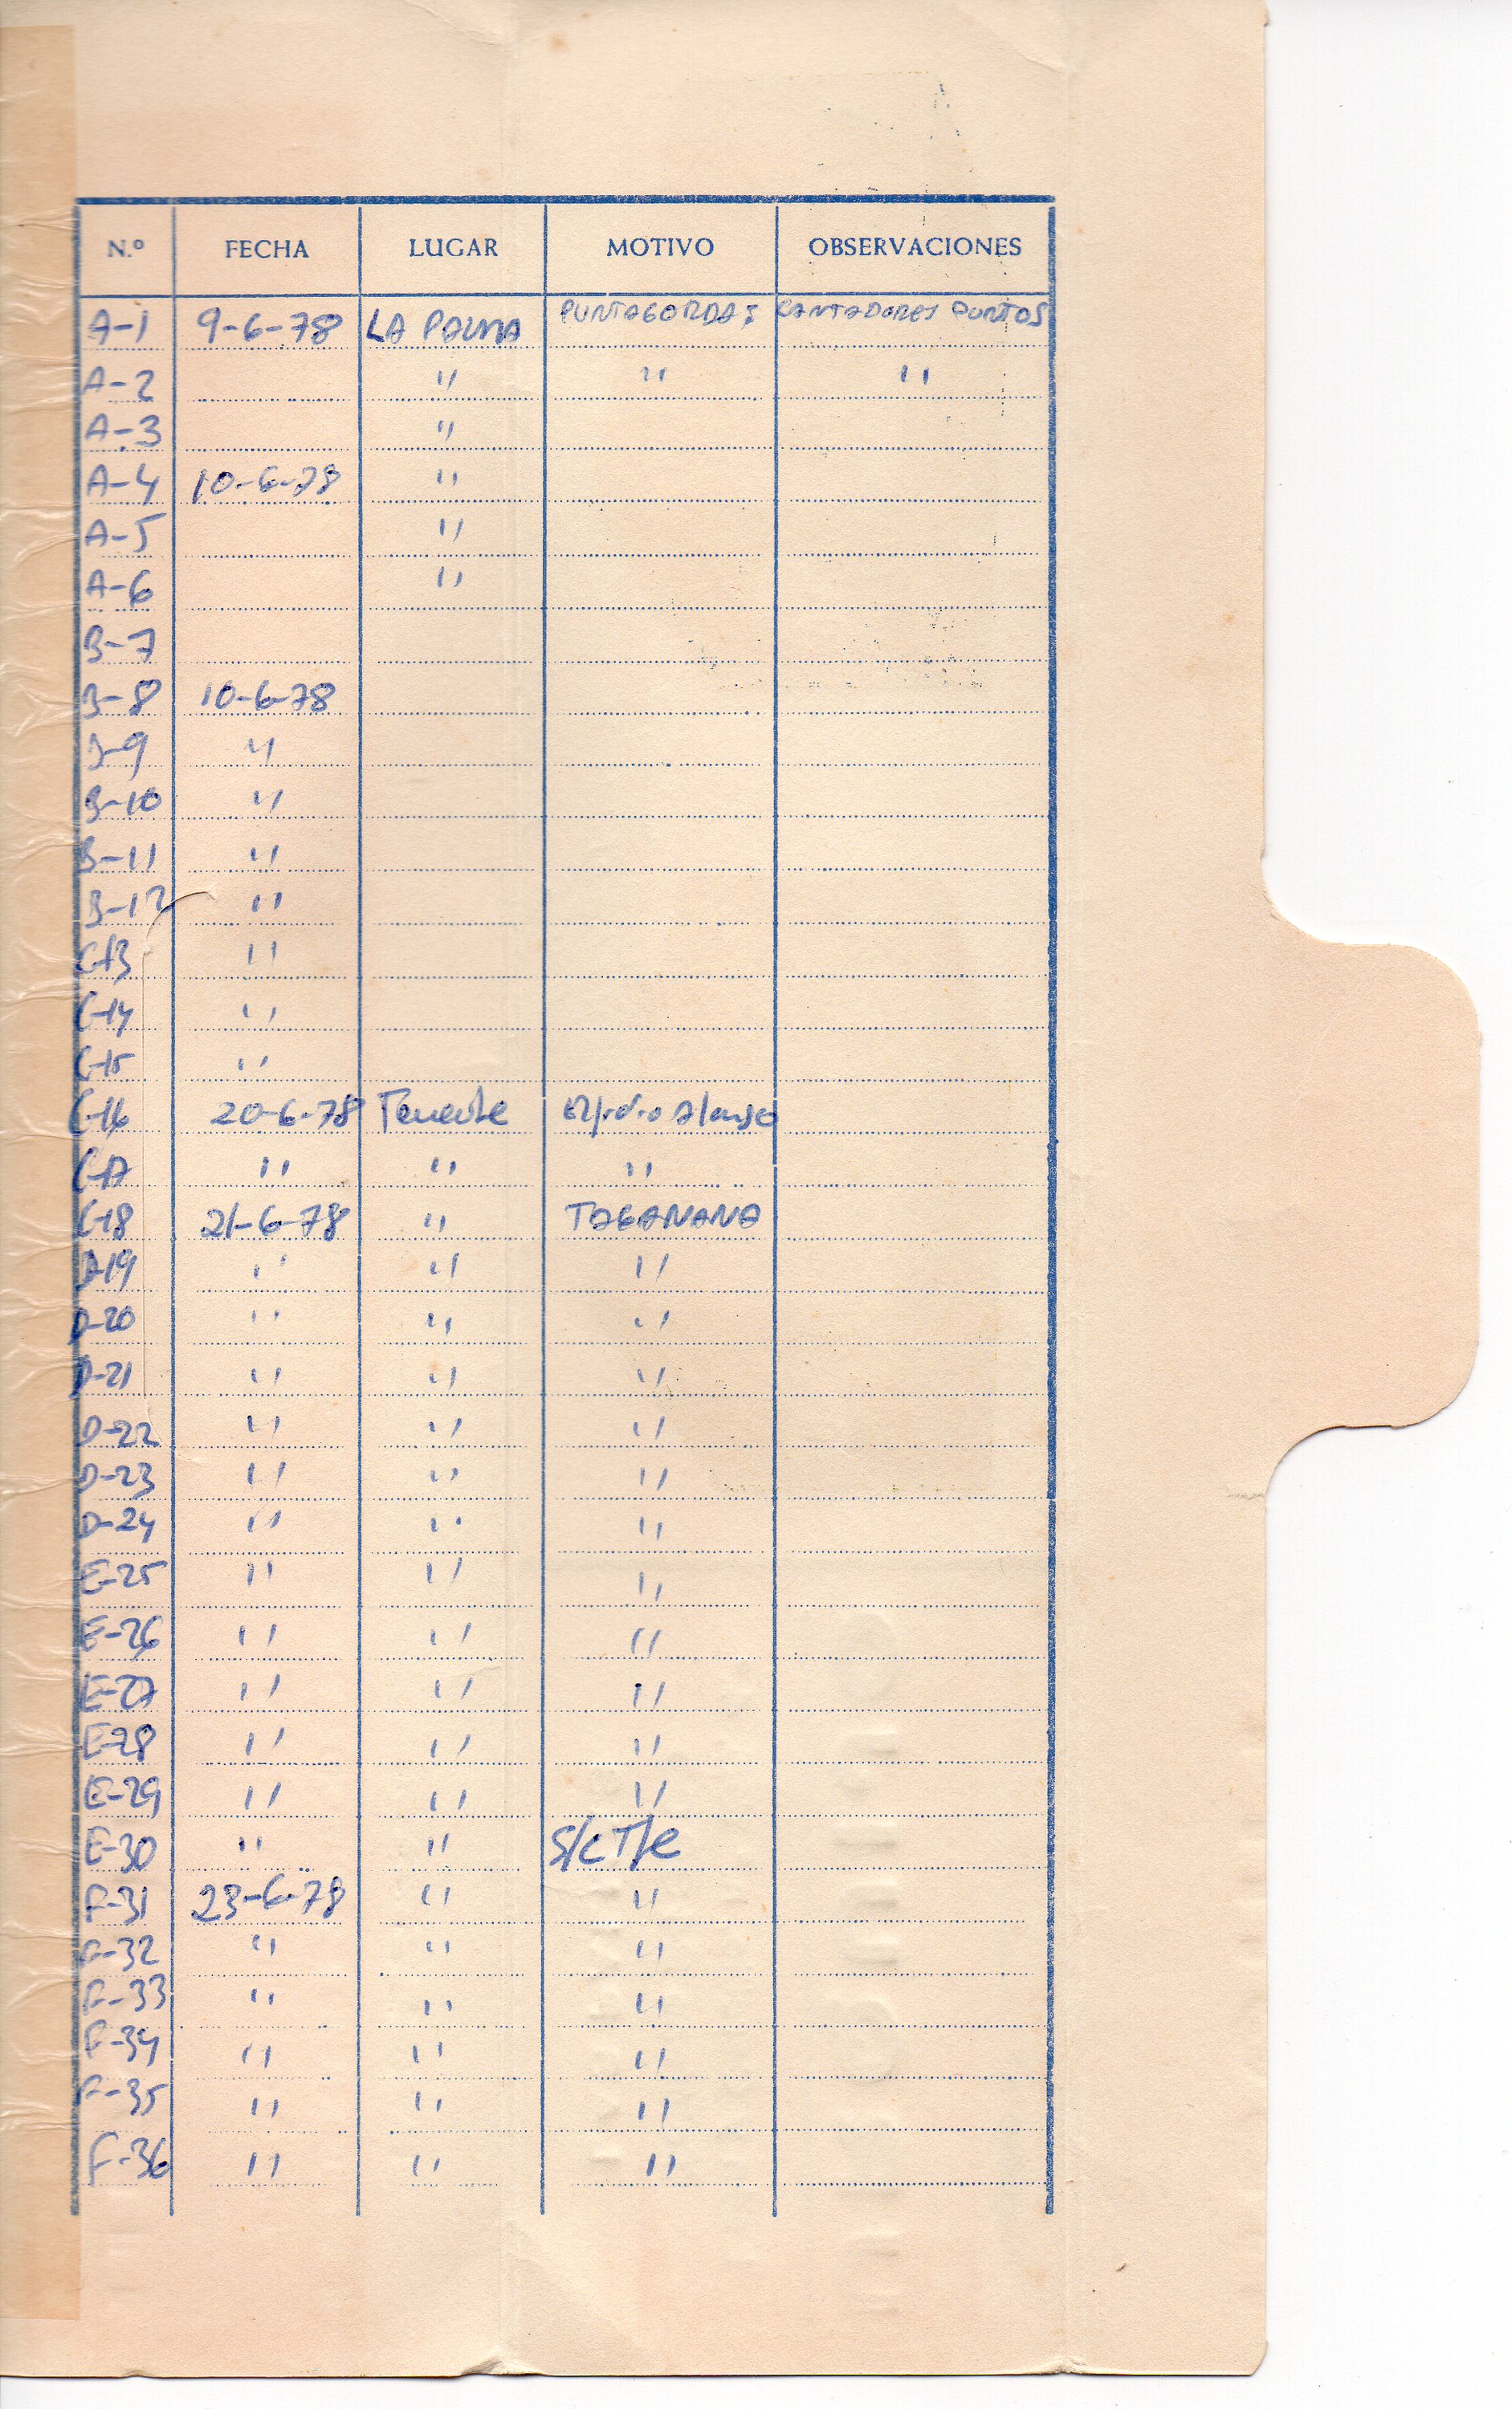 N.º FECHA LUGAR MOTIVO OBSERVACIONES
A-1 9-6-78 LA PALMA PUNTAGORDA: CANTADORES PUNTOS
A-2 " " "
A-3 "
A-4 10-6-78 "
A-5 "
A-6 "
B-7
B-8 10-6-78
B-9 "
B-10 "
B-11 "
B-12 "
C-13 "
C-14 "
C-15 "
C-16 20-6-78 Tenerife Alonso
C-17 " " "
C-18 21-6-78 " TAGANANA
D-19 " " "
D-20 " " "
D-21 " " "
D-22 " " "
D-23 " " "
D-24 " " "
E-25 " " "
E-26 " " "
E-27 " " "
E-28 " " "
E-29 " " "
E-30 " " S/C T/e
F-31 23-6-78 " "
F-32 " " "
F-33 " " "
F-34 " " "
F-35 " " "
F-36 " " "